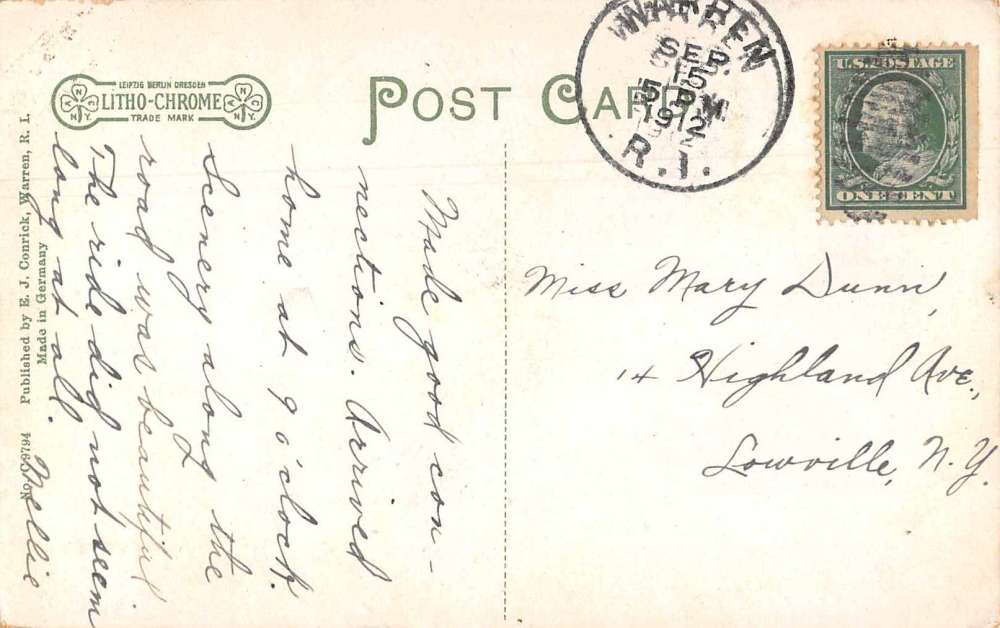 LEIPZIG BERLIN DRESDEN
LITHO-CHROME
TRADE MARK
N.Y.
POST CARD
WARREN
SEP
15
5 PM
1912
R.I.
U.S.POSTAGE
ONE CENT
Made good con-
nections. Arrived
home at 9 o'clock.
Scenery along the
road was beautiful
The ride did not seem
long at all.
Nellie
Miss Mary Dunn,
14 Highland Ave.,
Lowville, N.Y.
Published by E. J. Conrick, Warren, R. I.
Made in Germany
No. C9794